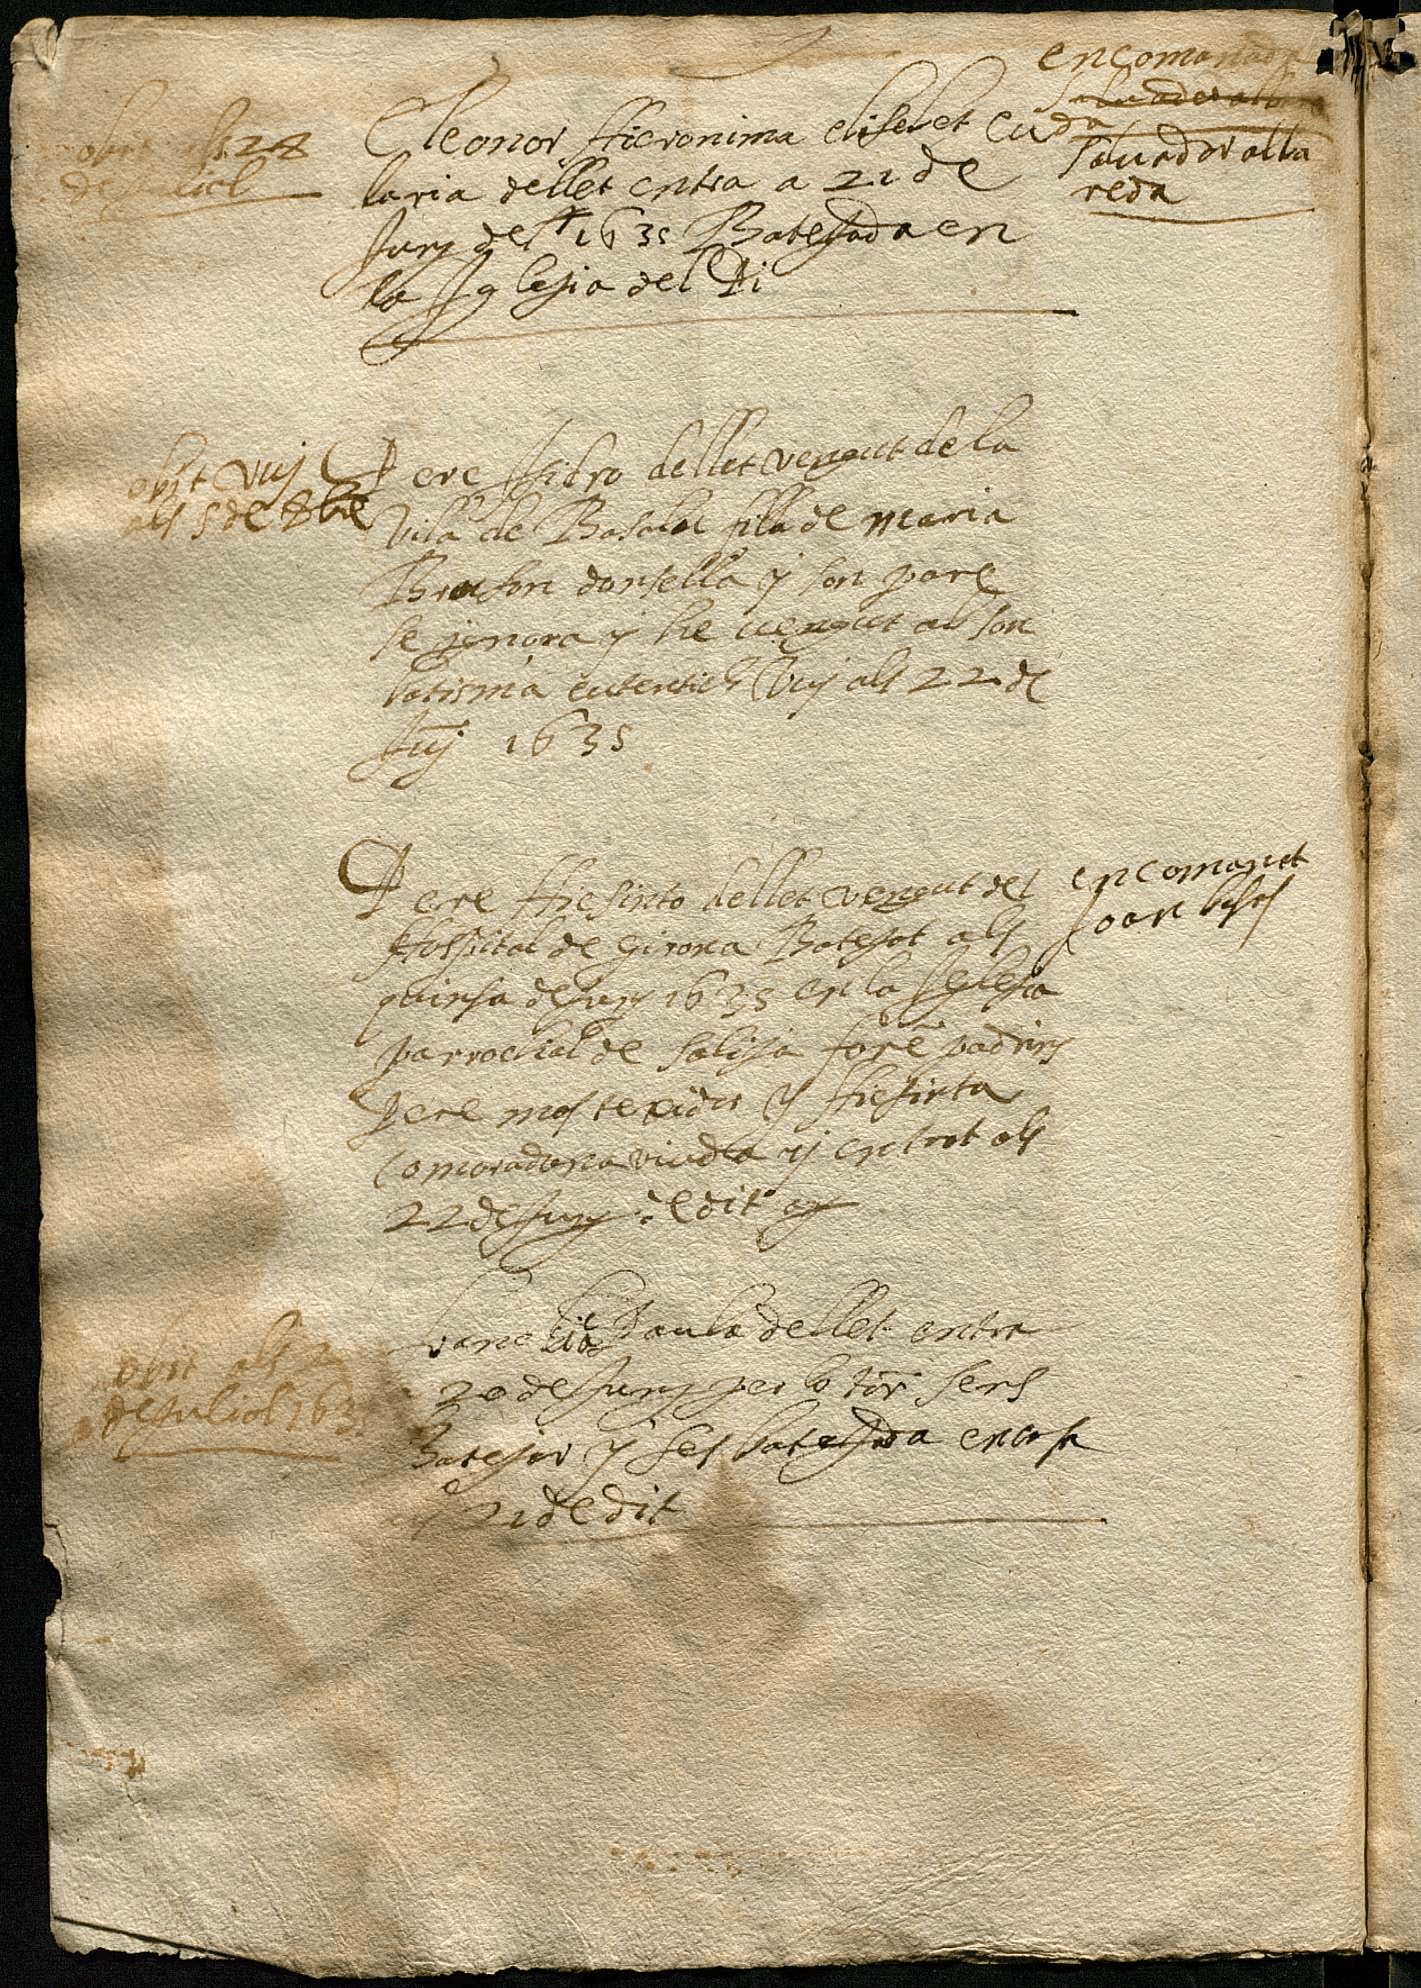 encomanada
obit als 28
de Juliol
Eleonor Hieronima elisabet eu
laria dellet entra a 21 de
Juny del 1635 Batesada en
la Iglesia del Pi
Saluador alba
reda
obit vuy
als 5 de 8bre
Pere Isidro dellet vengut de la
vila de Basalu fill de maria
donsella y son pare
se ignora y he vengut ab son
batisma autentich vuy als 22 de
Juny 1635
Pere Hiesinto dellet vengut del
Hospital de Girona Batesat als
quinsa de Juny 1635 en la Iglesia
parrochial de foren padrins
Pere y Hiesinta
viuda y entrat als
22 de Juny del dit any
encomanat
Joan
obit als 2
de Juliol 1635
Paula dellet entra
20 de Juny per lo torn sens
Batejar y fes batesada en casa
21 de dit